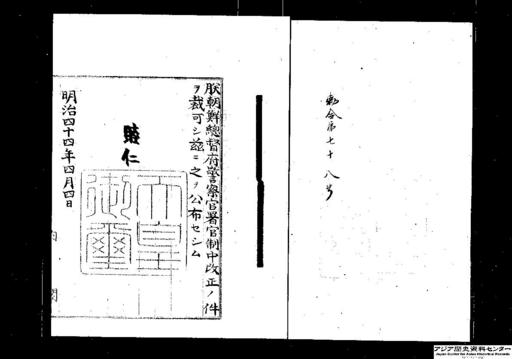 勅令第七十八号
朕朝鮮總督府警察官署官制中改正ノ件
ヲ裁可シ茲ニ之ヲ公布セシム
睦仁
天皇御璽
明治四十四年四月四日
内閣
アジア歴史資料センター
Japan Center for Asian Historical Records